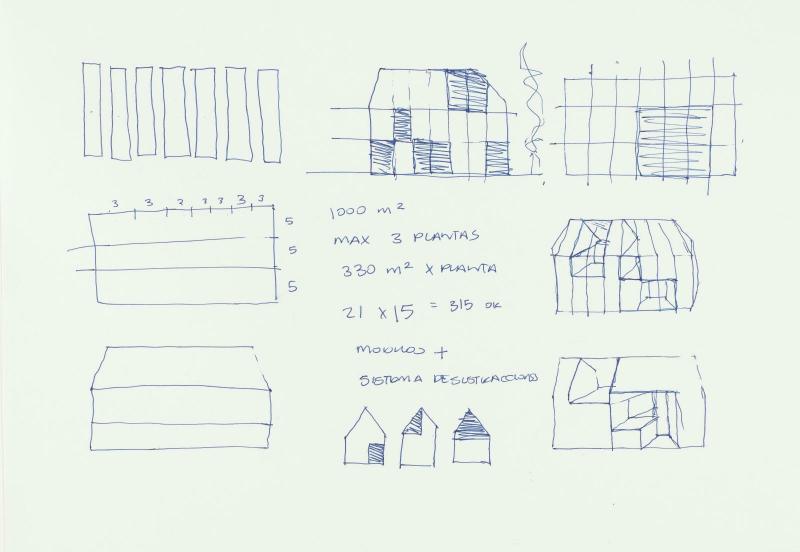 3 3 2 3 3 3 3
5
5
5
1000 m²
MAX 3 PLANTAS
330 m² X PLANTA
21 X 15 = 315 OK
MODULOS +
SISTEMA DE SUSTRACCIONES